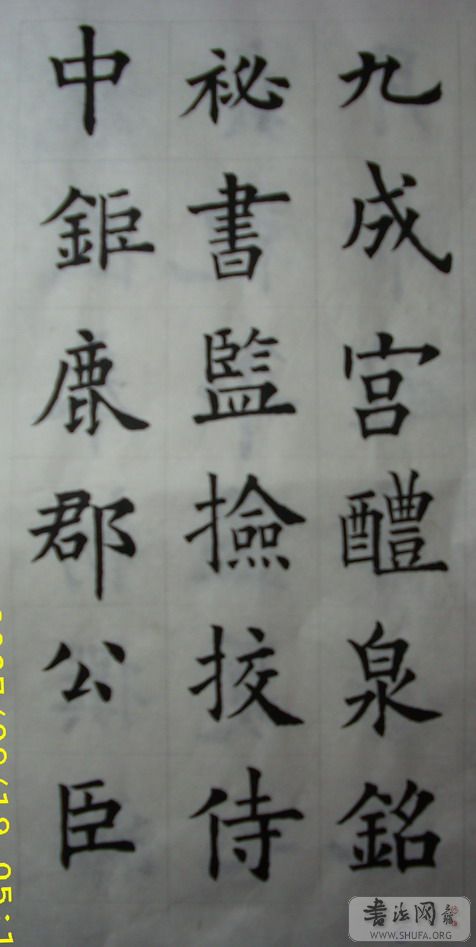 九成宫醴泉銘
祕書監撿挍侍
中鉅鹿郡公臣
書法网
WWW.SHUFA.ORG